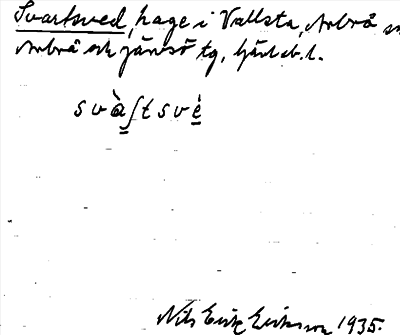 Svartsved, hage i Vallsta, Arbrå sn
Arbrå och Järvsö tg, Gävleb. l.
svàʃtsvé
Nils Eric Eriksson 1935.